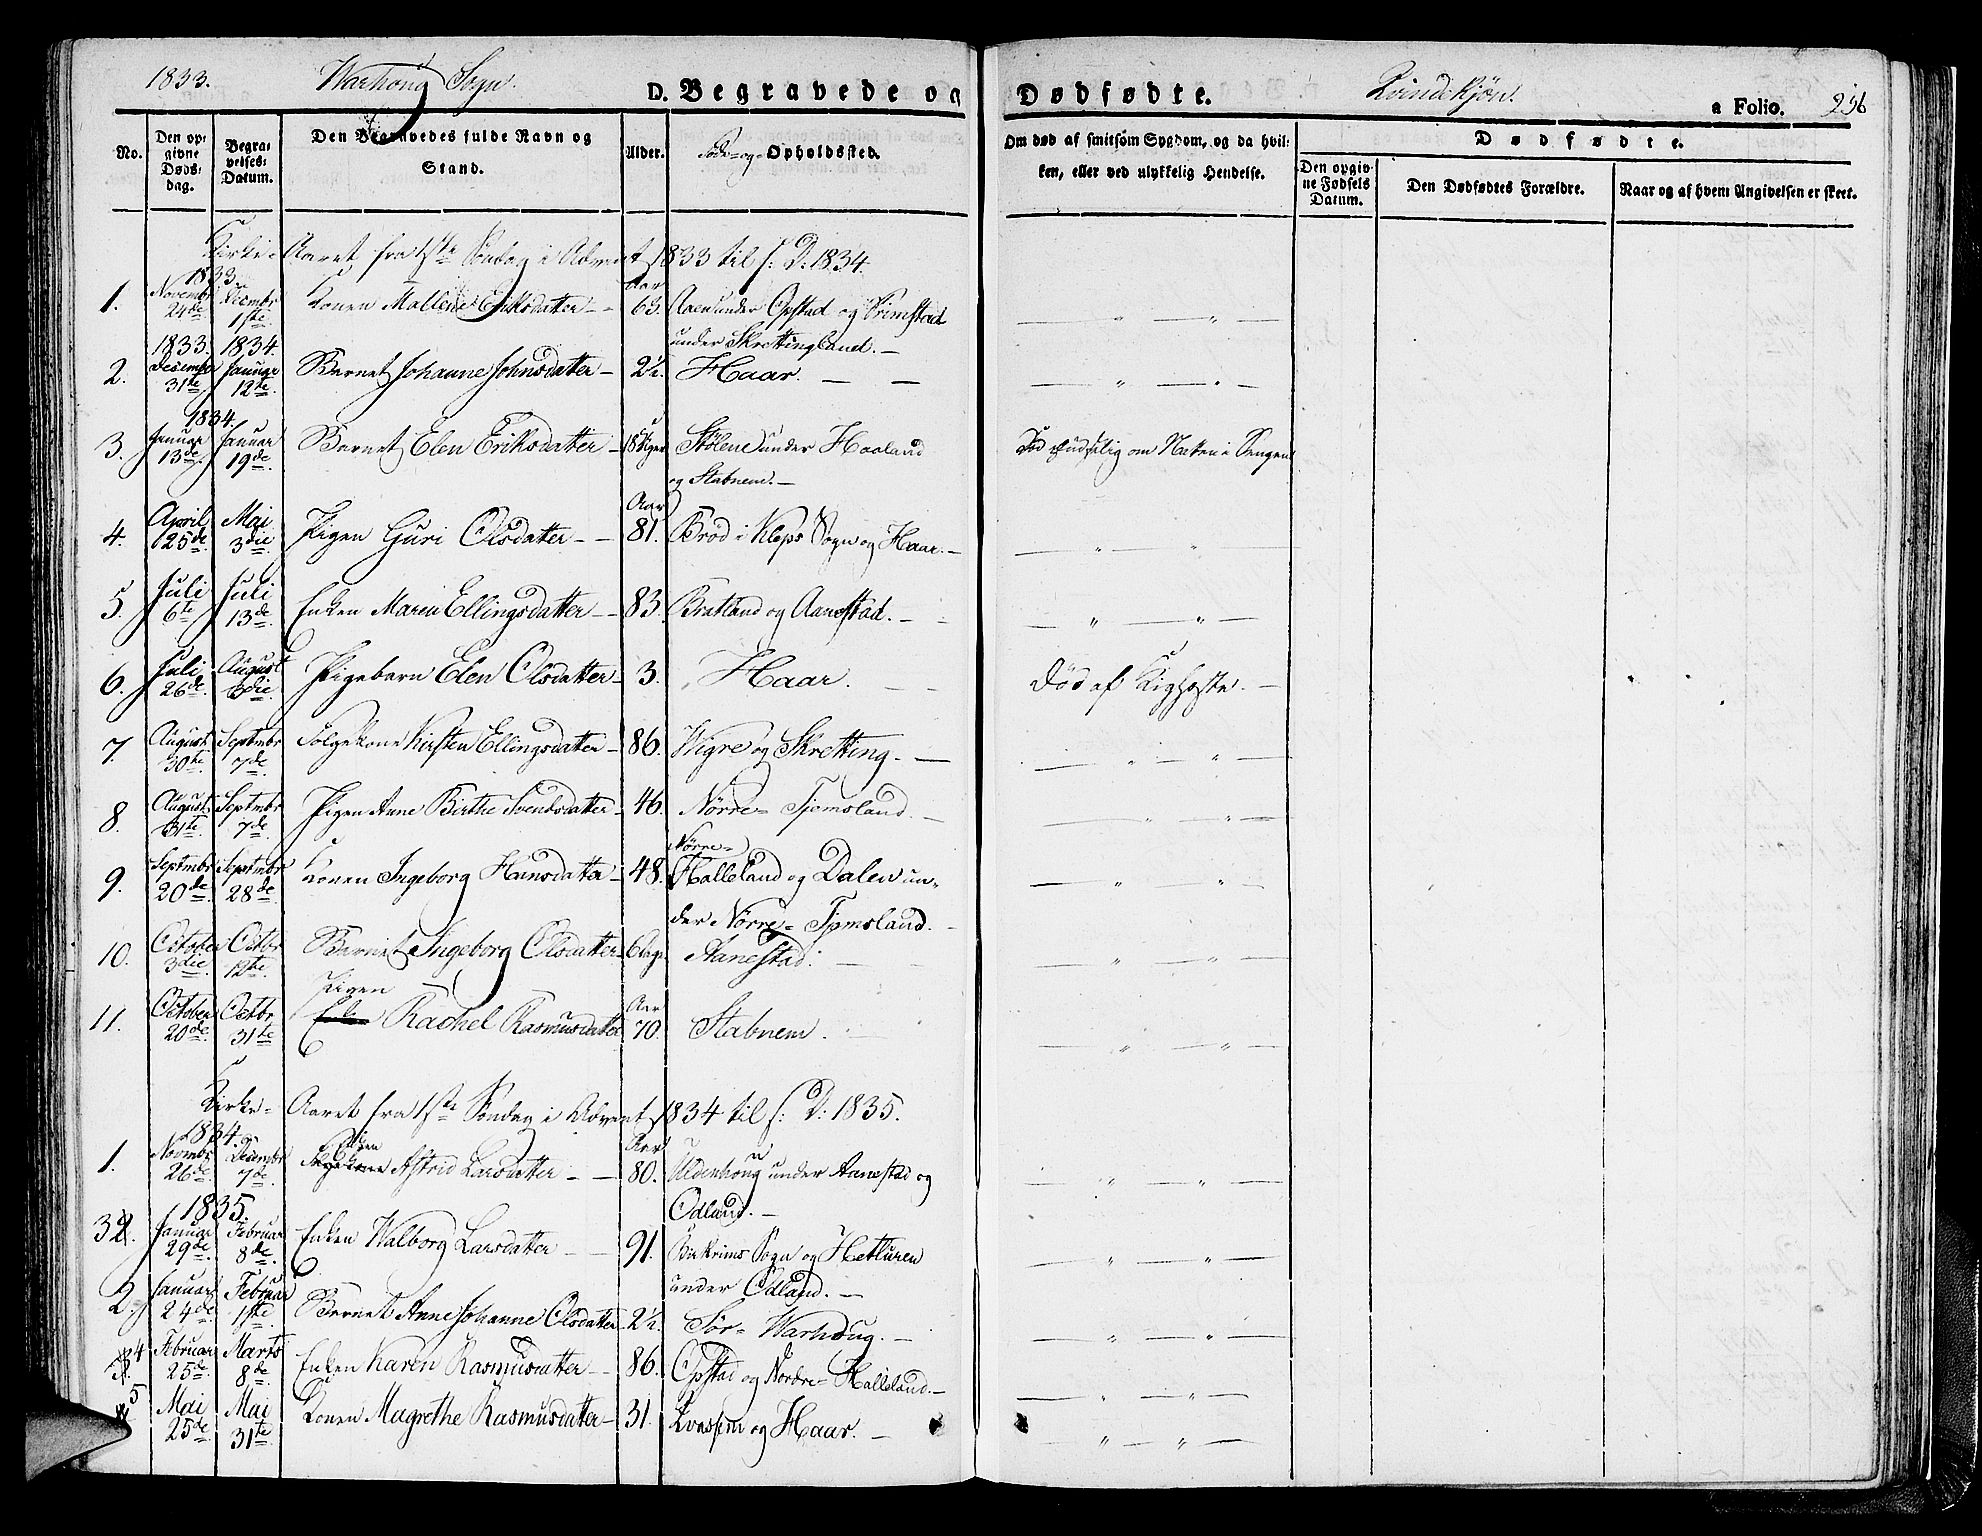 1833. Warhoug Sogn. D. Begravede og Dødfødte. Qvindekjøn. a Folio. 236
No. Den opgivne Døds-dag. Begravelses-Datum. Den Begravedes fulde Navn og Stand. Alder. Føde- og Opholdssted. Om død af smitsom Sygdom, og da hvilken, eller ved ulykkelig Hendelse. Dødfødte.
Den opgivne Fødsels Datum. Den Dødfødtes Forældre. Naar og af hvem Angivelsen er skeet.
Kirke-Aaret fra 1ste Søndag i Advent 1833 til s: D: 1834.
1833. Aar
1. Novembr 24de. Decembr 1ste. Konen Mallene Eriksdatter - - 63. Aaen under Opstad og Grimstad
under Skrettingland. -
1833. 1834.
2. Desember 31te. Januar 12te. Barnet Johanne Johnsdatter - 2½. Haar. - -
1834.
3. Januar 13de. Januar 19de. Barnet Elen Eriksdatter - 18 Uger Stølene under Haaland Død pludselig om Natten i Sengen
og Stabnem. -
Aar
4. April 25de. Mai 3die. Pigen Guri Olsdatter - - 81. Brød i Kleps Sogn og Haar. -
5. Juli 6te. Juli 13de. Enken Maren Ellingsdatter - - 83. Bratland og Aanestad. -
6. Juli 26de. August 3die. Pigebarn Elen Olsdatter - 3. Haar. - - Død af Kighoste. -
7. August 30te. Septmbr 7de. Følgekone Kirsten Ellingsdatter - 86. Wigre og Skretting. -
8. August 31te. Septmbr 7de. Pigen Anne Birthe Svendsdatter - 46. Nørre- Tjemsland. -
Nørre-
9. Septmbr 20de. Septmbr 28de. Konen Ingeborg Hansdatter - 48. Halleland og Dalen un-
der Nørre- Tjemsland. -
10. October 3die. Octbr 12te. Barnet Ingeborg Olsdatter - 6 Dage Aanestad. -
Pigen Aar
11. October 20de. Octbr 31te. Enken Rachel Rasmusdatter 70. Stabnem.
Kirke-Aaret fra 1ste Søndag i Advent 1834 til s: D: 1835.
1834. Enken Aar
1. Novmbr 26de. Decembr 7de. Følgekone Astrid Larsdatter - - 80. Uldenhoug under Aanestad og
Odland. -
1835.
32. Januar 29de. Februar 8de. Enken Walborg Larsdatter - - 91. Birkrims Sogn og Hetturen
under Odland. -
2. Januar 24de. Februar 1ste. Barnet Anne Johanne Olsdatter - 2½. Sør- Warhoug. -
3. 4 Februar 25de. Marts 8de. Enken Karen Rasmusdatter - - 86. Opstad og Nordre- Halleland. -
5 Mai 25de. Mai 31te. Konen Magrethe Rasmusdatter - 31. Qvassem og Haar. -